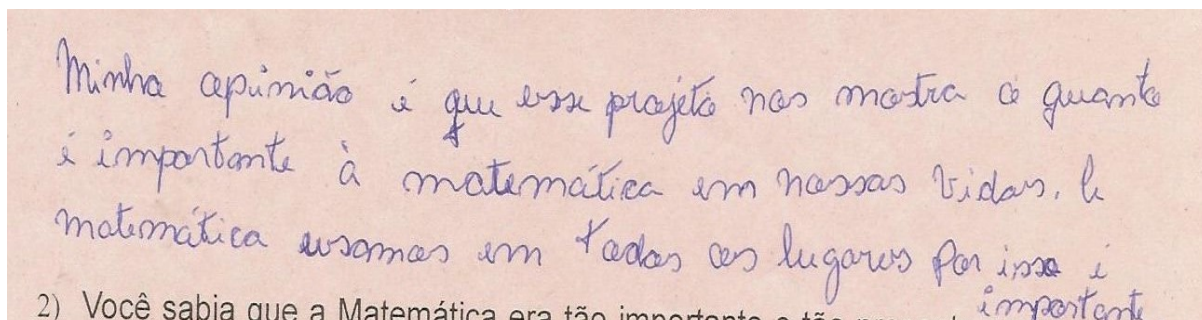 Minha opinião é que esse projeto nos mostra o quanto
é importante à matemática em nossas vidas. E
matemática usamos em todos os lugares por isso é
importante
2) Você sabia que a Matemática era tão importante e tão